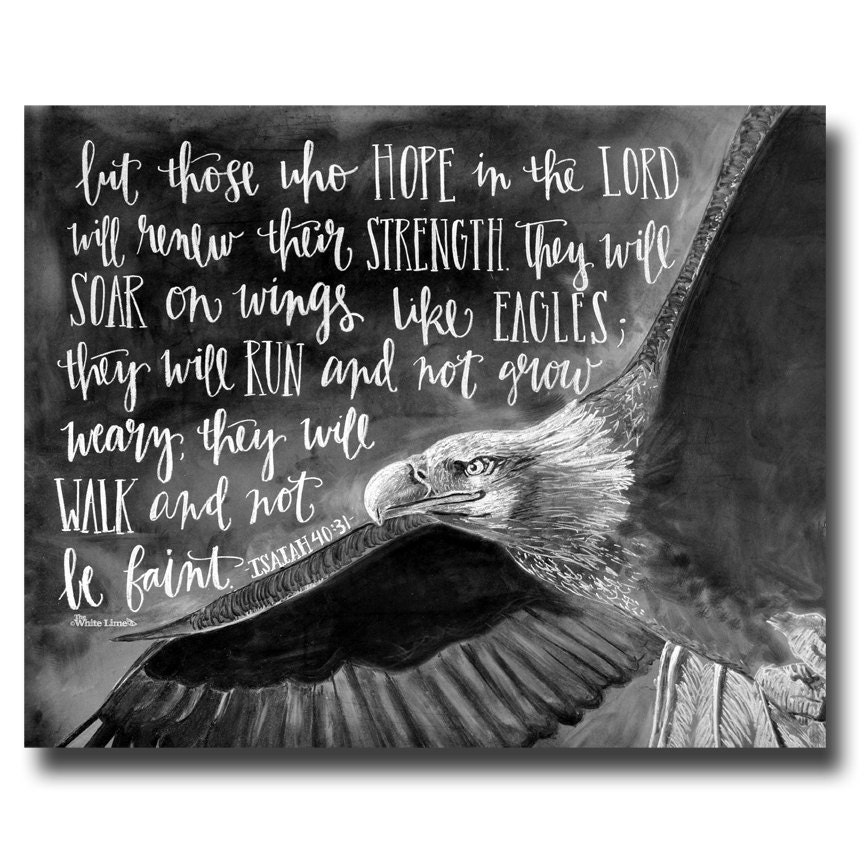 but those who HOPE in the LORD
will renew their STRENGTH. They will
SOAR on wings like EAGLES;
they will RUN and not grow
weary, they will
WALK and not
be faint. -ISAIAH 40:31-
©The White Lime